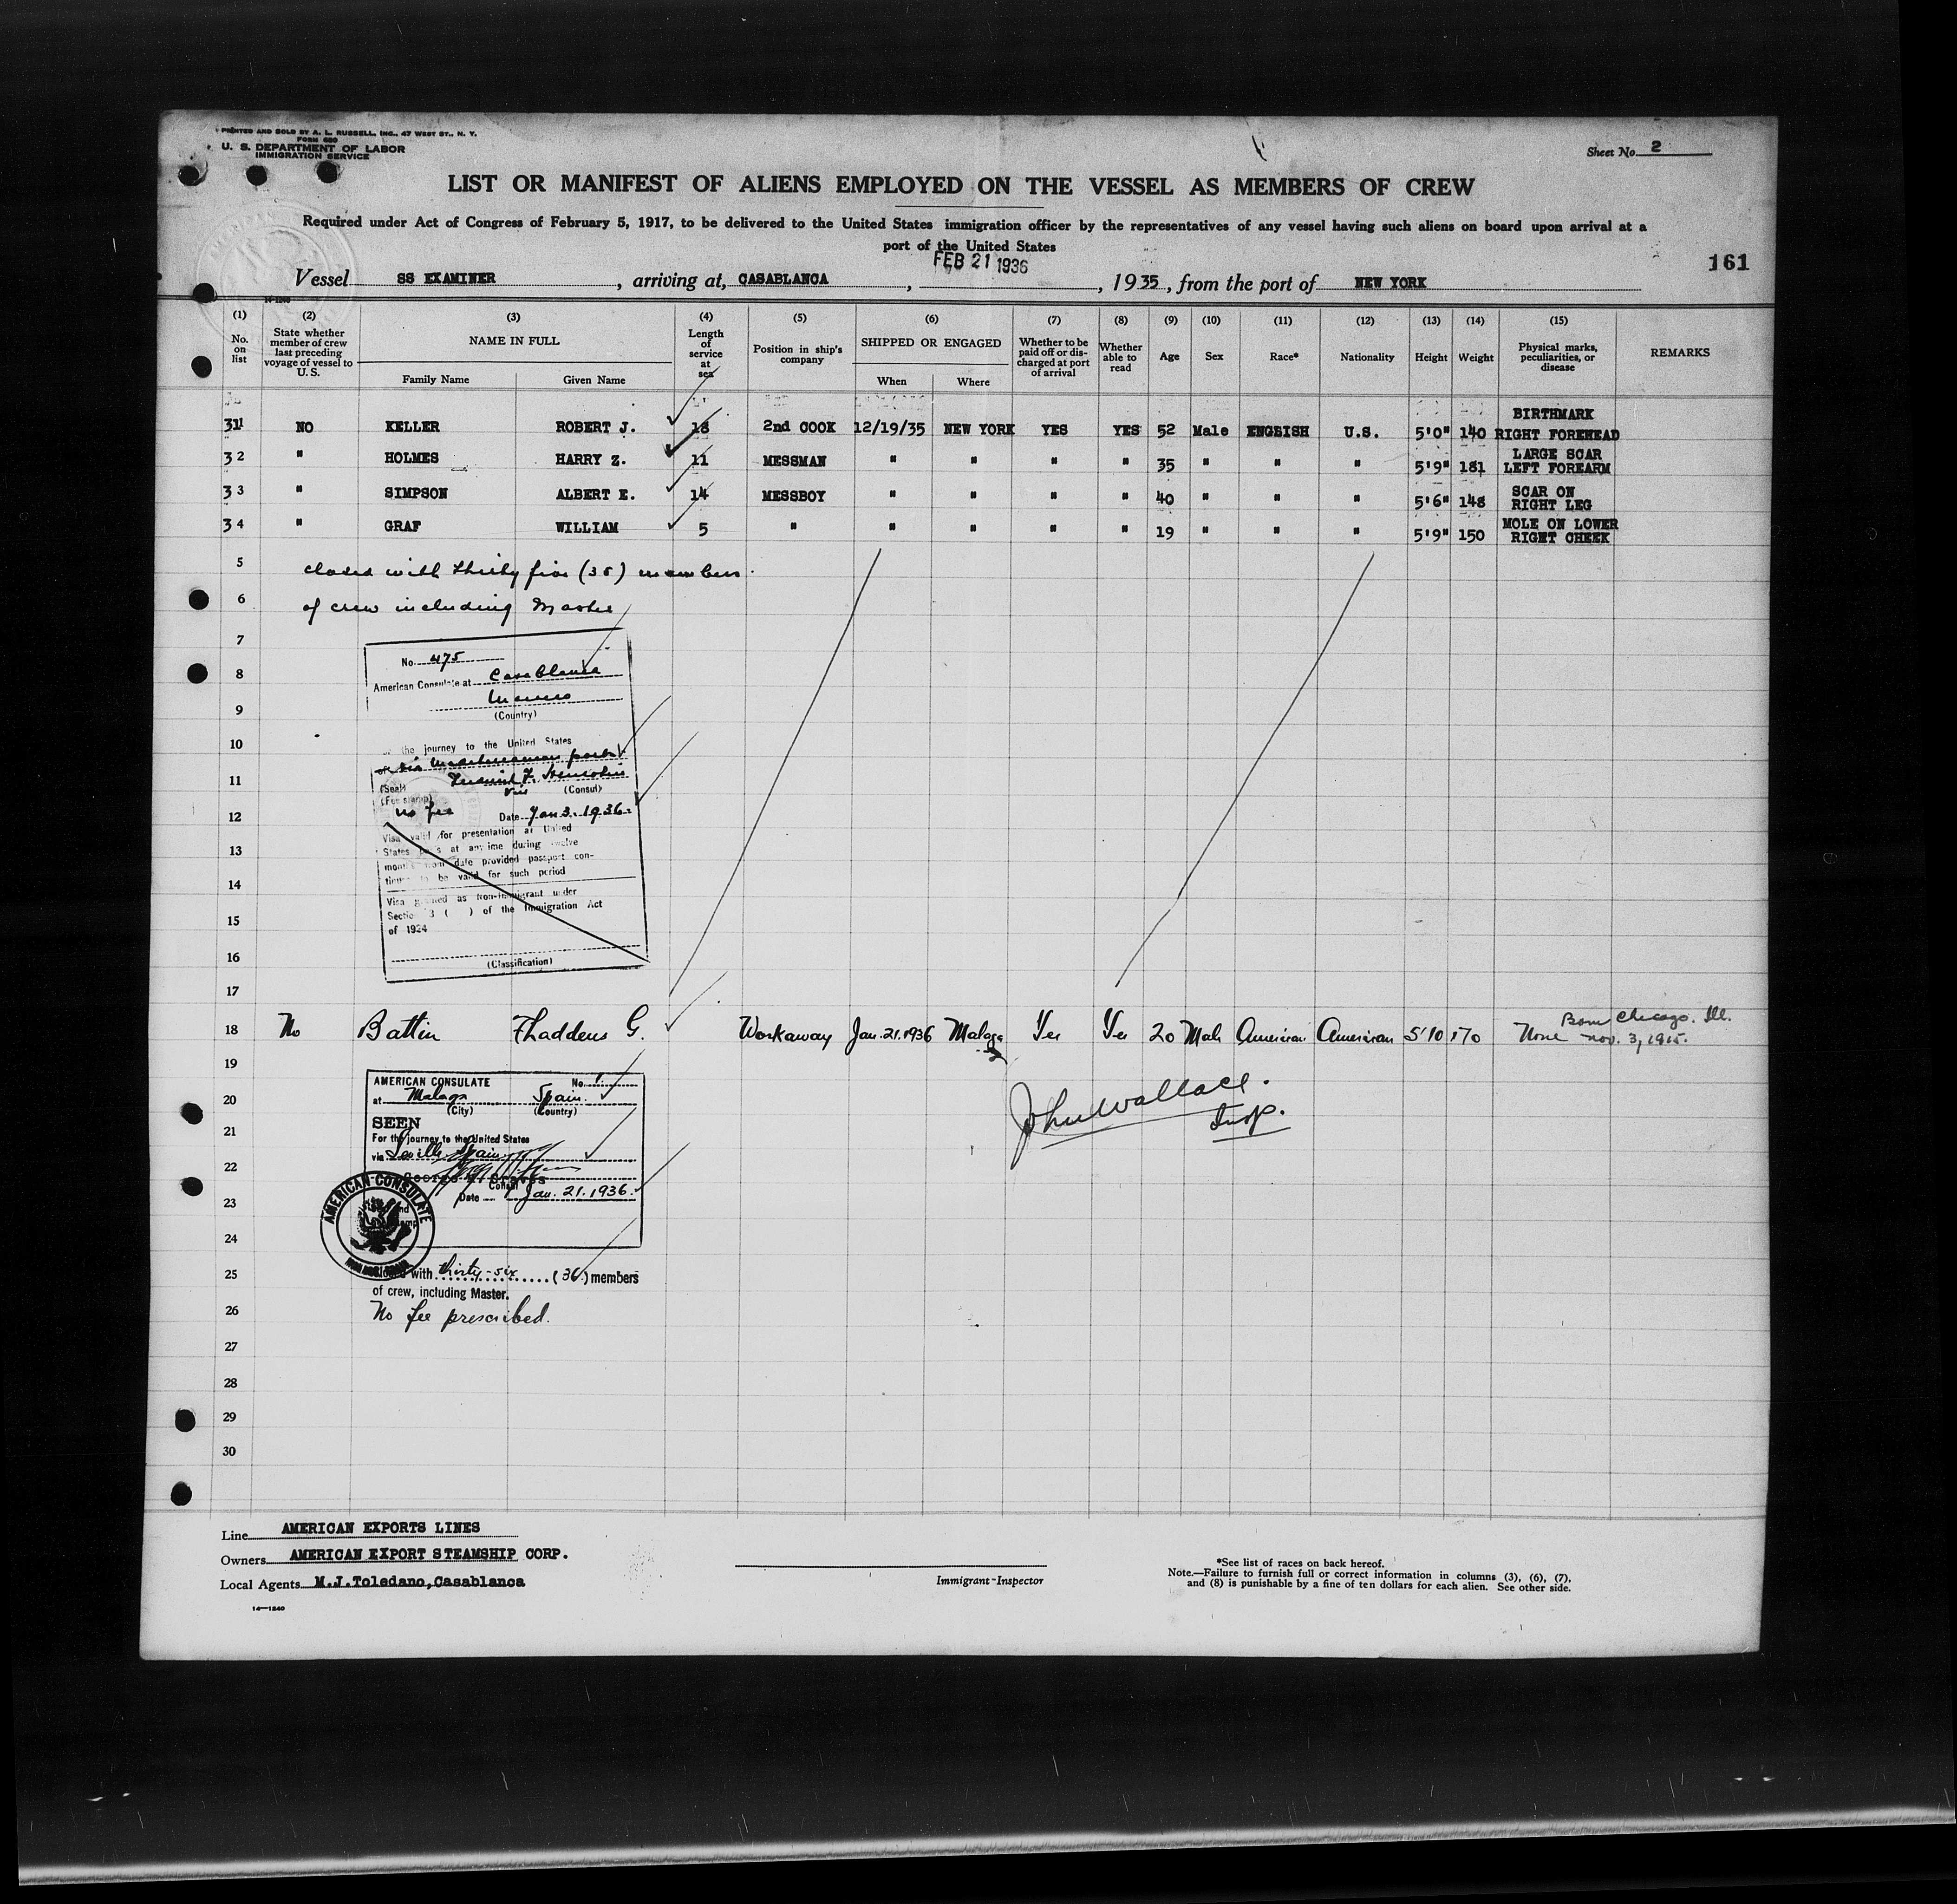 PRINTED AND SOLD BY A. L. RUSSELL, INC., 47 WEST ST., N. Y.
FORM 680
U. S. DEPARTMENT OF LABOR
IMMIGRATION SERVICE
Sheet No. 2
LIST OR MANIFEST OF ALIENS EMPLOYED ON THE VESSEL AS MEMBERS OF CREW
Required under Act of Congress of February 5, 1917, to be delivered to the United States immigration officer by the representatives of any vessel having such aliens on board upon arrival at a
port of the United States
FEB 21 1936
161
Vessel SS EXAMINER, arriving at, CASABLANCA, , 1935, from the port of NEW YORK
14-1240
(1) (2) (3) (4) (5) (6) (7) (8) (9) (10) (11) (12) (13) (14) (15)
No. on list
State whether member of crew last preceding voyage of vessel to U. S.
NAME IN FULL
Family Name
Given Name
Length of service at sea
Position in ship's company
SHIPPED OR ENGAGED
When
Where
Whether to be paid off or discharged at port of arrival
Whether able to read
Age
Sex
Race*
Nationality
Height
Weight
Physical marks, peculiarities, or disease
REMARKS
31 NO KELLER ROBERT J. 18 2nd COOK 12/19/35 NEW YORK YES YES 52 Male ENGLISH U.S. 5'0" 140 BIRTHMARK RIGHT FOREHEAD
32 " HOLMES HARRY Z. 11 MESSMAN " " " " 35 " " " 5'9" 181 LARGE SCAR LEFT FOREARM
33 " SIMPSON ALBERT E. 14 MESSBOY " " " " 40 " " " 5'6" 148 SCAR ON RIGHT LEG
34 " GRAF WILLIAM 5 " " " " " 19 " " " 5'9" 150 MOLE ON LOWER RIGHT CHEEK
5 closed with thirty five (35) members
6 of crew including Master
7
No. 475
8
American Consulate at Casablanca
Morocco
9
(Country)
10
the journey to the United States
via Mediterranean ports
11
(Seal) (Consul)
Vice
(Fee stamp)
12
no fee Date Jan 3. 1936
Visa valid for presentation at United
States ports at any time during twelve
13
months from date provided passport con-
tinues to be valid for such period
14
Visa granted as Non-immigrant under
15
Section 3 ( ) of the Immigration Act
of 1924
16
(Classification)
17
18 No Battin Thaddeus G. Workaway Jan. 21. 1936 Malaga Yes Yes 20 Male American American 5'10 170 None
Born Chicago. Ill.
nov. 3, 1915.
19
AMERICAN CONSULATE No. 1
20
at Malaga Spain.
(City) (Country)
John Wallace.
Insp.
SEEN
21
For the journey to the United States
via Seville, Spain
22
George M. Graves
Consul
23
Date Jan. 21. 1936.
AMERICAN CONSULATE
24
25
Closed with thirty-six (36) members
of crew, including Master.
26
No fee prescribed.
27
28
29
30
Line AMERICAN EXPORTS LINES
Owners AMERICAN EXPORT STEAMSHIP CORP.
Local Agents M.J.Toledano, Casablanca
14-1240
Immigrant Inspector
*See list of races on back hereof.
Note.—Failure to furnish full or correct information in columns (3), (6), (7),
and (8) is punishable by a fine of ten dollars for each alien. See other side.